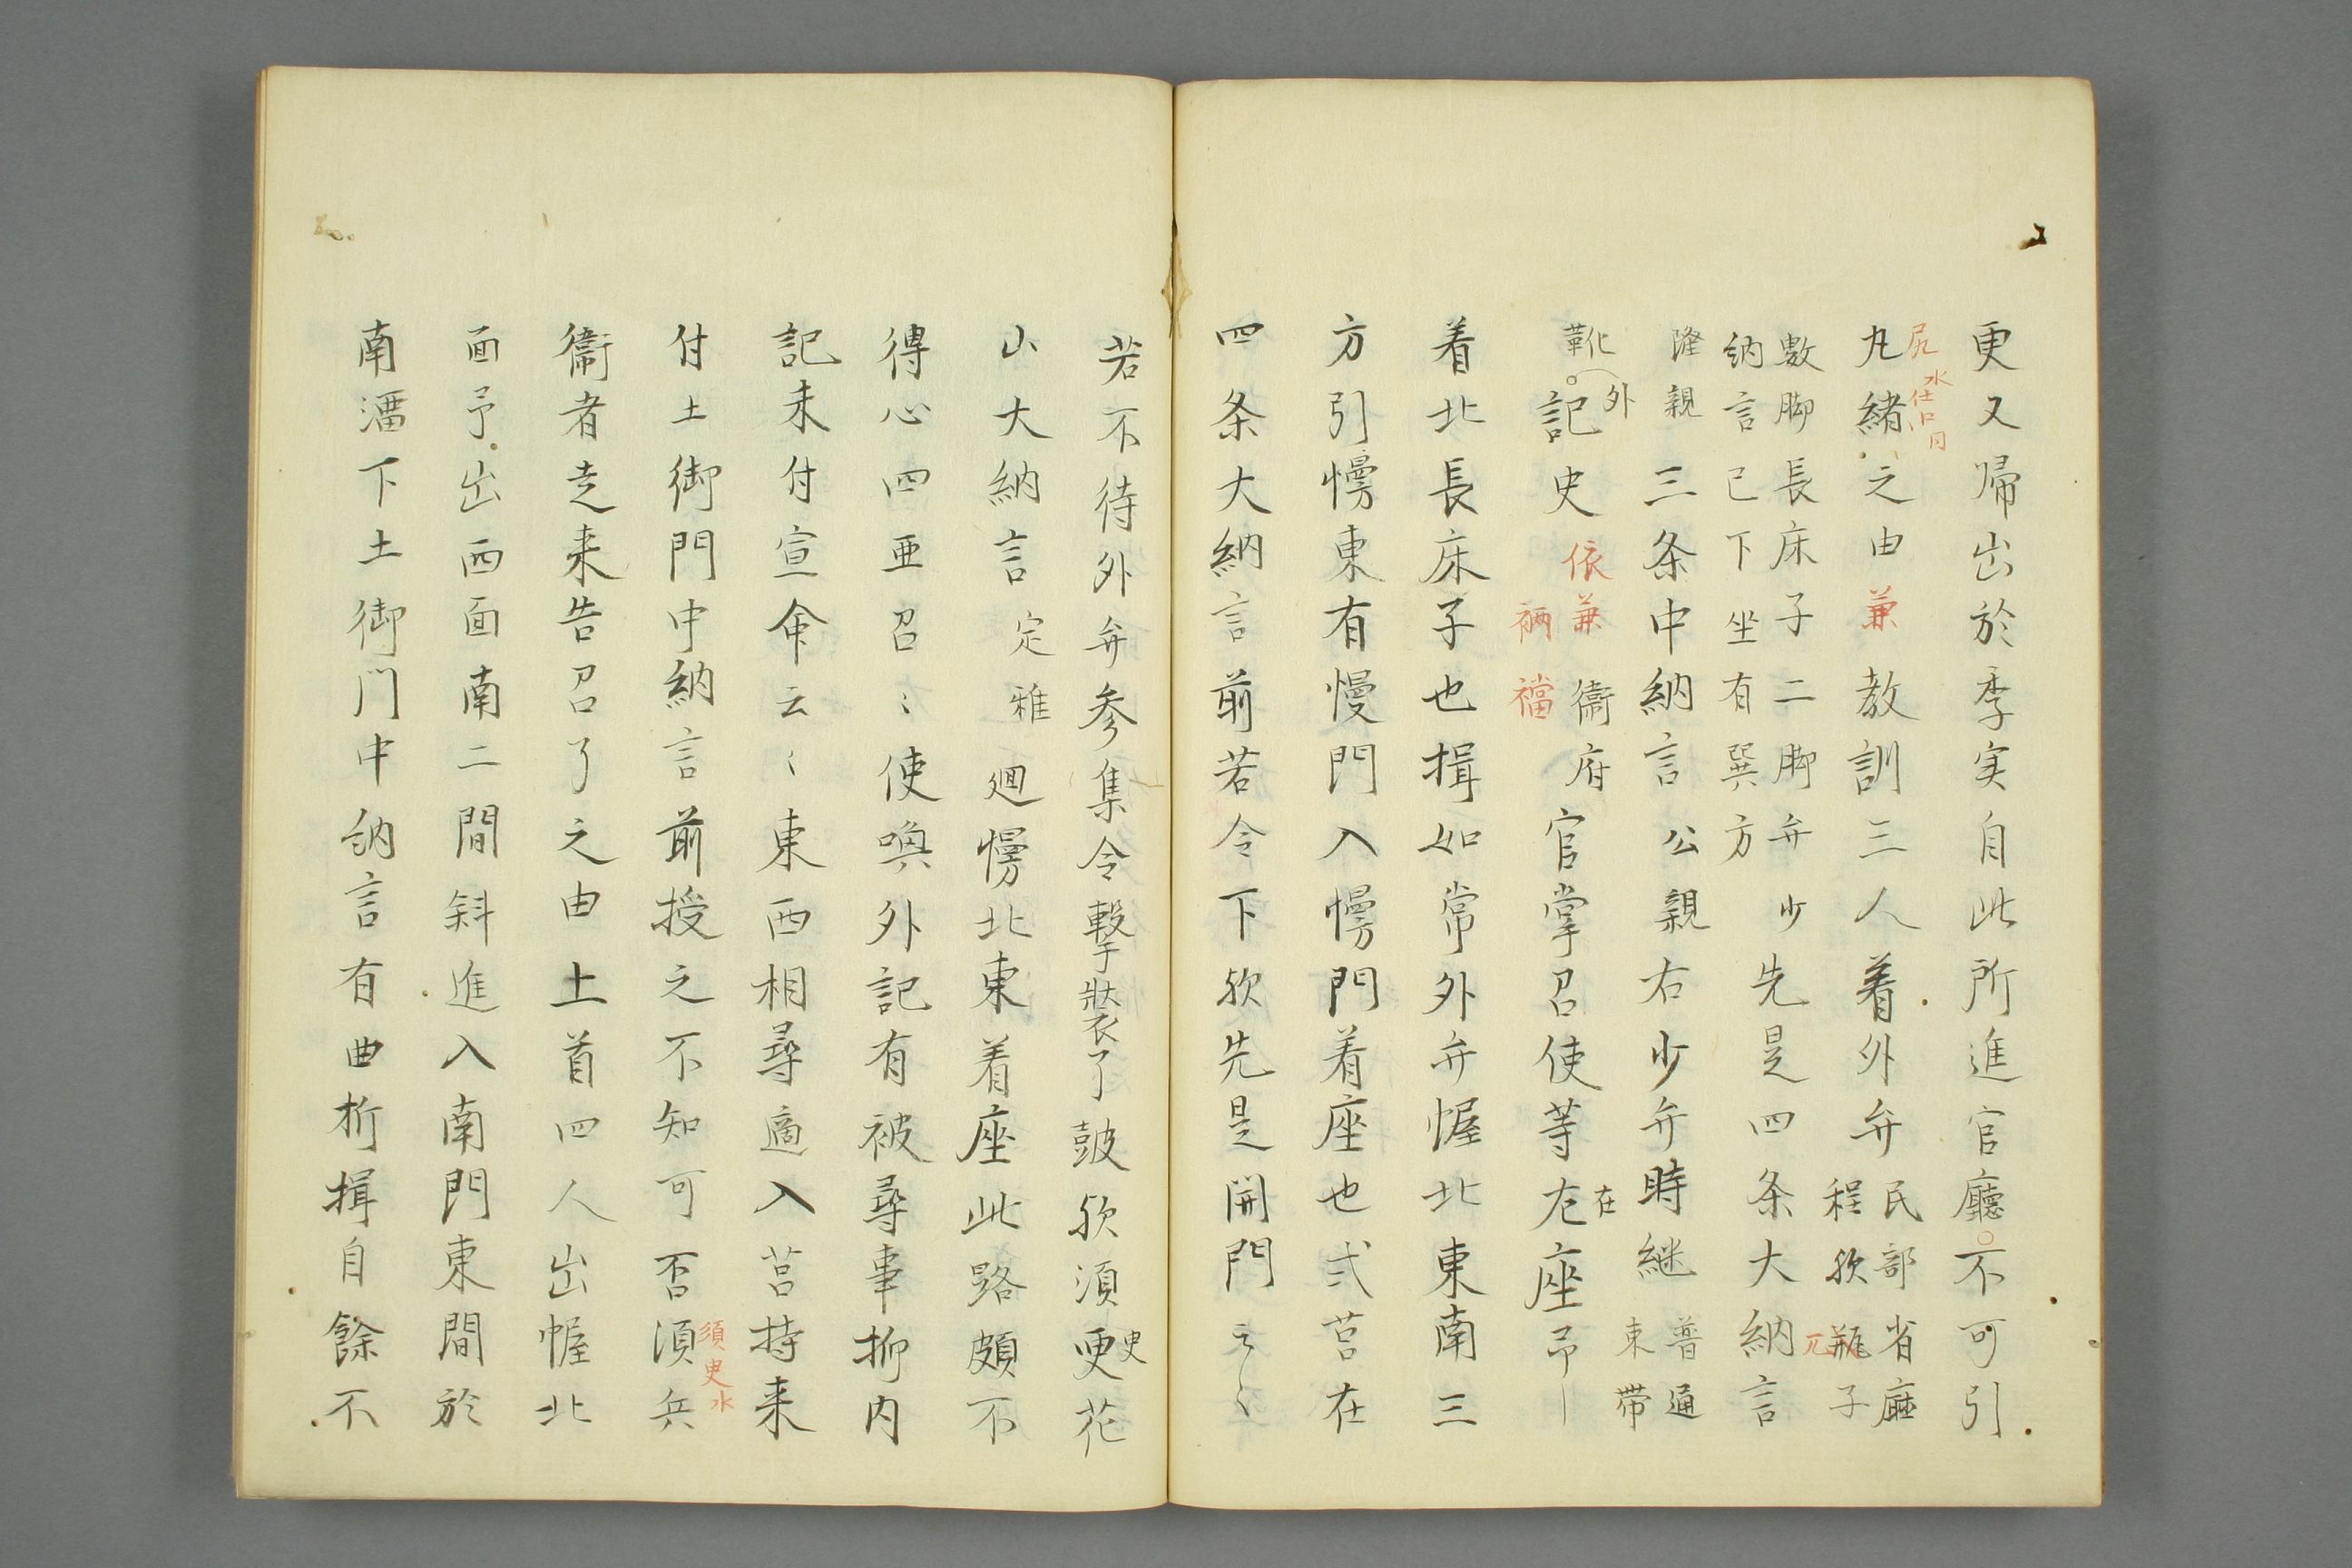 更又帰出於季実自此所進官廳不可引
尻水
丸緒之由兼教訓三人着外弁民部省廳
程欤瓶子
數脚長床子二脚弁少
納言已下坐有巽方先是四条大納言
隆親三条中納言公親右少弁時継普通
束帯
靴外記史依兼衛府官掌召使等在座
裲襠
左在
着北長床子也揖如常外弁幄北東南三
方引幔東有幔門入幔門着座也弐筥在
四条大納言前若令下欤先是開門云々
若不待外弁参集令撃装了皷欤須更花
史
山大納言定雅廻幔北東着座此路頗不
得心四亜召々使喚外記有被尋事抑内
記未付宣命云々東西相尋適入筥持来
付土御門中納言前授之不知可否須兵
須史
衛者走来告召了之由土首四人出幄北
面予出西面南二間斜進入南門東間於
南澑下土御門中納言有曲折揖自餘不